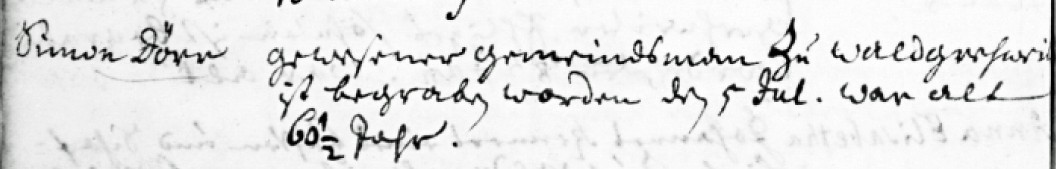 Simon Dörr gewesener gemeindsman Zu waldgrehwei
ist begraben worden den 5 Jul. war alt
60½ Jahr.